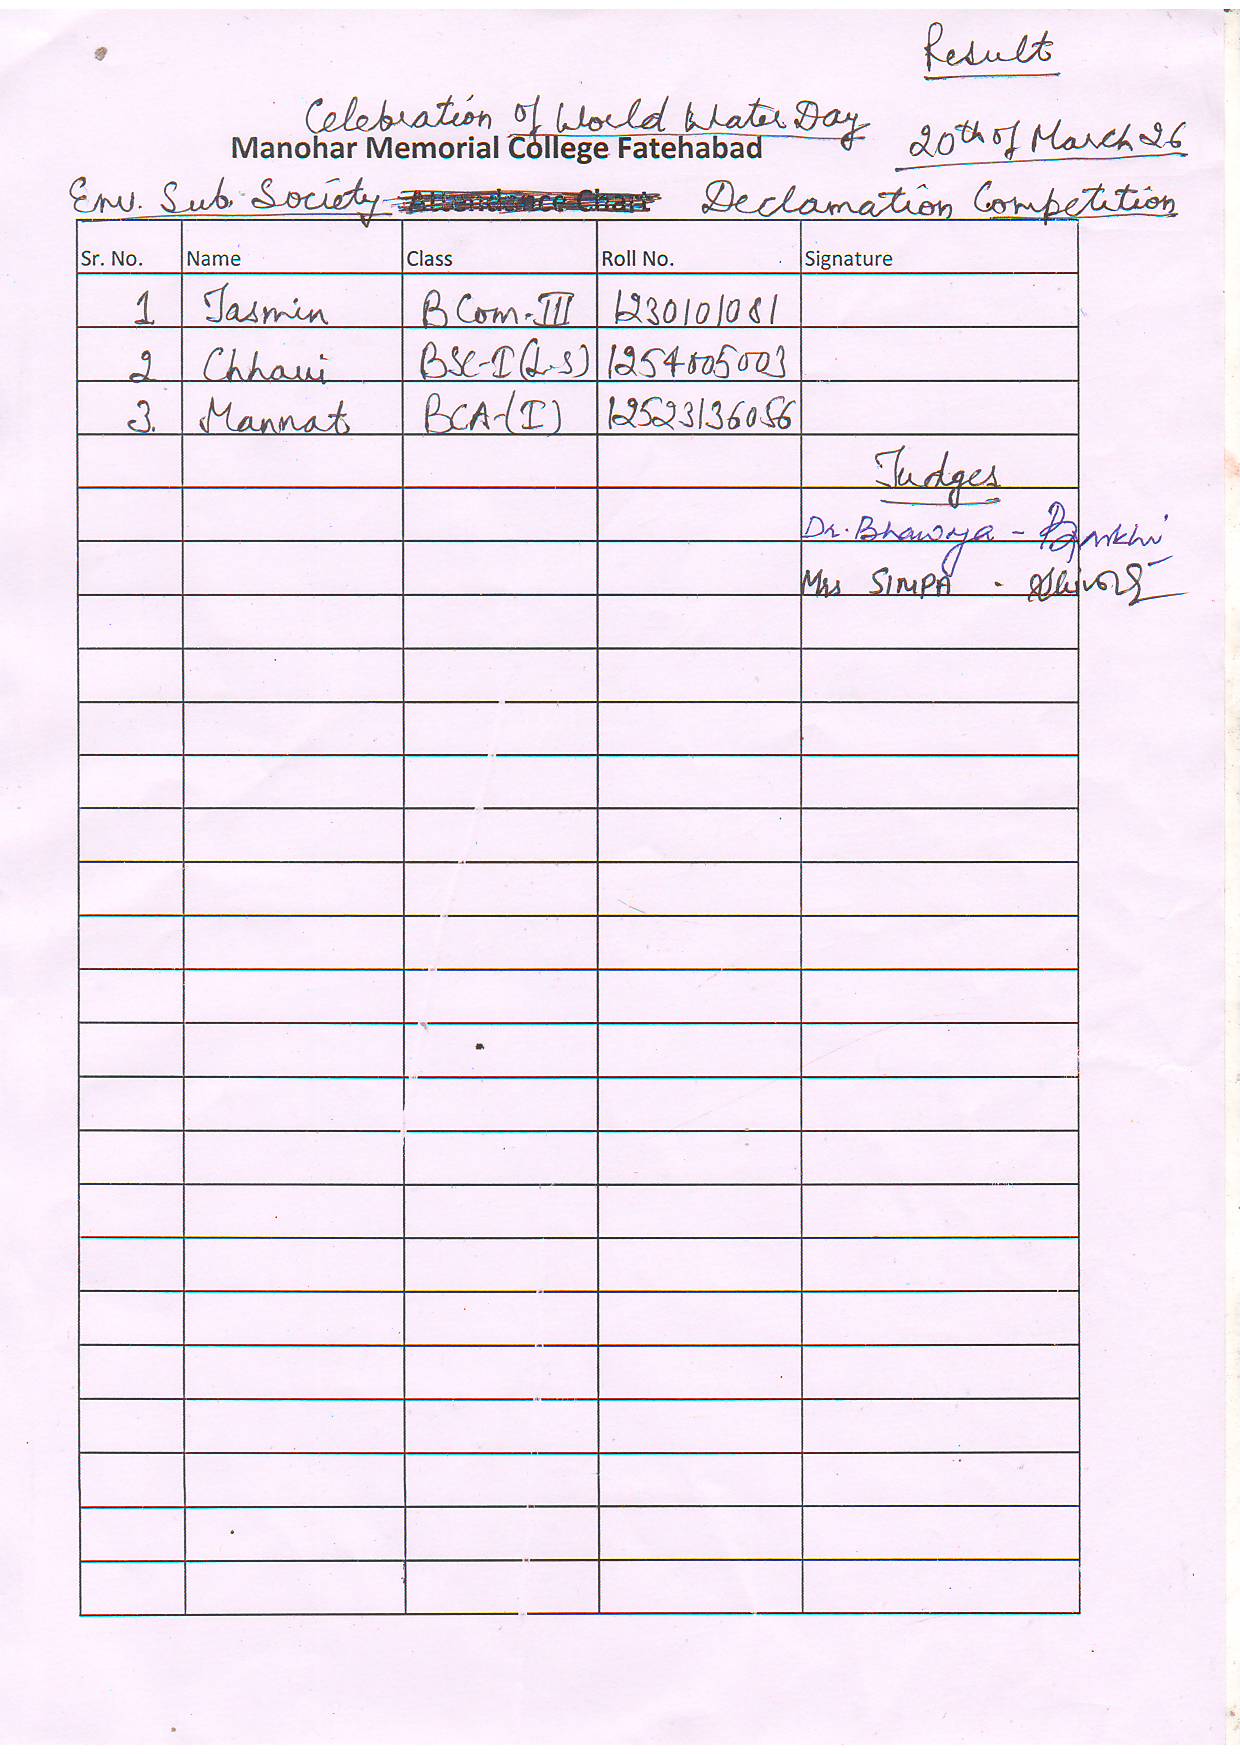 Result
Celebration of World Water Day
Manohar Memorial College Fatehabad
20th of March 26
Env. Sub. Society Attendence Chart Declamation Competition
Sr. No. Name Class Roll No. Signature
1 Jasmin B Com-III 1230101081
2 Chhavi BSC-I (L-S) 1254005003
3. Mannat BCA-(I) 12523136056
Judges
Dr. Bhawya -
Mrs SIMPA -